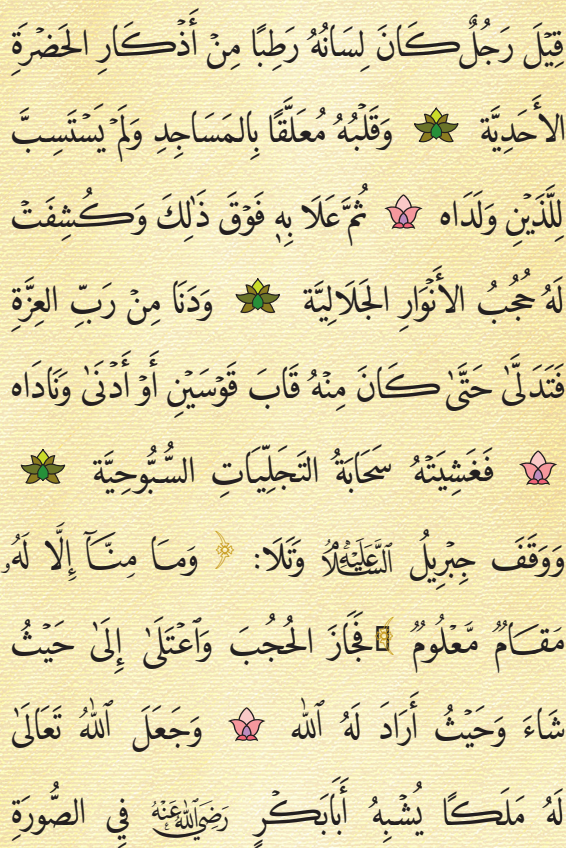 قِيْلَ رَجُلٌ كَانَ لِسَانُهُ رَطِبًا مِنْ أَذْكَارِ الحَضْرَةِ
الأَحَدِيَّة وَقَلْبُهُ مُعَلَّقًا بِالمَسَاجِدِ وَلَمْ يَسْتَسِبَّ
لِلَّذَيْنِ وَلَدَاه ثُمَّ عَلَا بِهِ فَوْقَ ذَٰلِكَ وَكُشِفَتْ
لَهُ حُجُبُ الأَنْوَارِ الجَلَالِيَّة وَدَنَا مِنْ رَبِّ العِزَّةِ
فَتَدَلَّىٰ حَتَّىٰ كَانَ مِنْهُ قَابَ قَوْسَيْنِ أَوْ أَدْنَىٰ وَنَادَاه
فَغَشِيَتْهُ سَحَابَةُ التَجَلِّيَاتِ السُّبُّوحِيَّة
وَوَقَفَ جِبْرِيلُ عَلَيْهِ السَّلَامُ وَتَلَا: ﴿ وَمَا مِنَّآ إِلَّا لَهُۥ
مَقَامٌ مَّعْلُومٌ ﴾ فَجَازَ الحُجُبَ وَٱعْتَلَىٰ إِلَىٰ حَيْثُ
شَاءَ وَحَيْثُ أَرَادَ لَهُ ٱللّٰه وَجَعَلَ ٱللّٰهُ تَعَالَىٰ
لَهُ مَلَكًا يُشْبِهُ أَبَابَكْرٍ رَضِيَ اللّٰهُ عَنْهُ فِي الصُّورَةِ